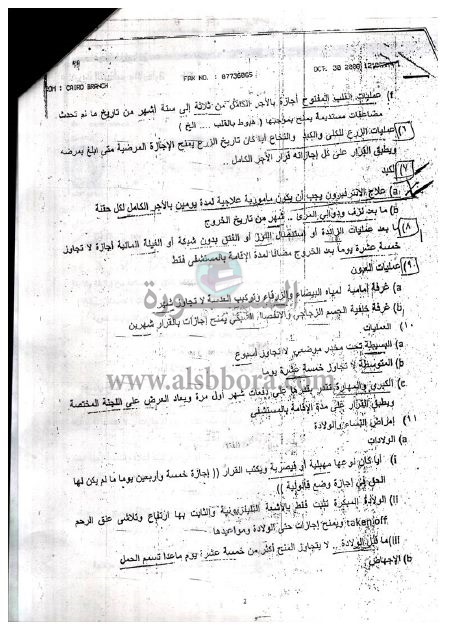 OM : CAIRO BRANCH FAX NO. : 07736065 OCT. 30 2006
f) عمليات القلب المفتوح أجازة بالأجر الكامل من ثلاثة إلى ستة أشهر من تاريخ ما لم تحدث
مضاعفات مستديمة يمنح بموجبها ( هبوط بالقلب .... الخ )
٦) عمليات الزرع للكلى والكبد والنخاع أيا كان تاريخ الزرع يمنح الإجازة المرضية متى ابلغ بمرضه
ويطبق القرار على كل إجازاته قرار الأجر الكامل ..
٧) الكبد
a) علاج الانترفيرون يجب أن يكون مأمورية علاجية لمدة يومين بالأجر الكامل لكل حقنة
b) ما بعد نزف ودوالي المرئ .. شهر من تاريخ الخروج
٨) ما بعد عمليات الزائدة أو استئصال اللوز أو الفتق بدون شبكة أو القيلة المائية أجازة لا تجاوز
خمسة عشرة يوماً بعد الخروج مضافا لمدة الإقامة بالمستشفى فقط
٩) عمليات العيون
a) غرفة أمامية لمياه البيضاء والزرقاء وتركيب العدسة لا تجاوز شهر
b) غرفة خلفية الجسم الزجاجي والانفصال الشبكي يمنح إجازات بالقرار شهرين
١٠) العمليات
a) البسيطة تحت مخدر موضعي لا تجاوز أسبوع
b) المتوسطة لا تجاوز خمسة عشرة يوما
www.alsbbora.com
السبورة
c) الكبرى والمهارة على دفعات شهر أول مرة ويعاد العرض على اللجنة المختصة
ويطبق القرار على مدة الإقامة بالمستشفى
١١) إمراض النساء والولادة
a) الولادات
i) أيا كان نوعها مهبلية أو قيصرية ويكتب القرار (( إجازة خمسة واربعين يوما ما لم يكن لها
الحق في إجازة وضع قانونية ))
ii) الولادة المبكرة تثبت فقط بالأشعة التليفزيونية والثابت بها ارتفاع وتلاشى عنق الرحم
taken off ويمنح إجازات حتى الولادة ومواعيدها
iii) ما قبل الولادة ... لا يتجاوز المنح أكثر من خمسة عشر يوم ماعدا تسمم الحمل
b) الإجهاض
2